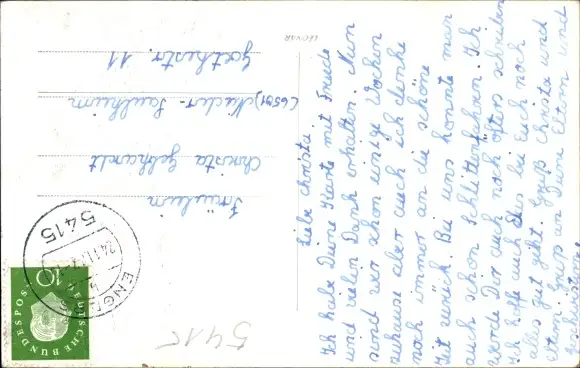 Liebe Christa
Ich habe Deine Karte mit Freude
und vielen Dank erhalten. Nun
sind wir schon einige Wochen
zuhause aber auch ich denke
noch immer an die schöne
Zeit zurück. Bei uns konnte man
auch schon Schlittenfahren. Ich
werde Dir auch noch öfters schreiben
Ich hoffe auch das bei Euch noch
alles gut geht. Gruß Christa und
Eltern. Gruß an Deine Eltern und
Geschwister
Fräulein
Christa Gebhardt
(6501) Nieder-Saulheim
Goethestr. 11
5415
24.11.
ENGE
10
DEUTSCHE BUNDESPOST
5415
LEONAR